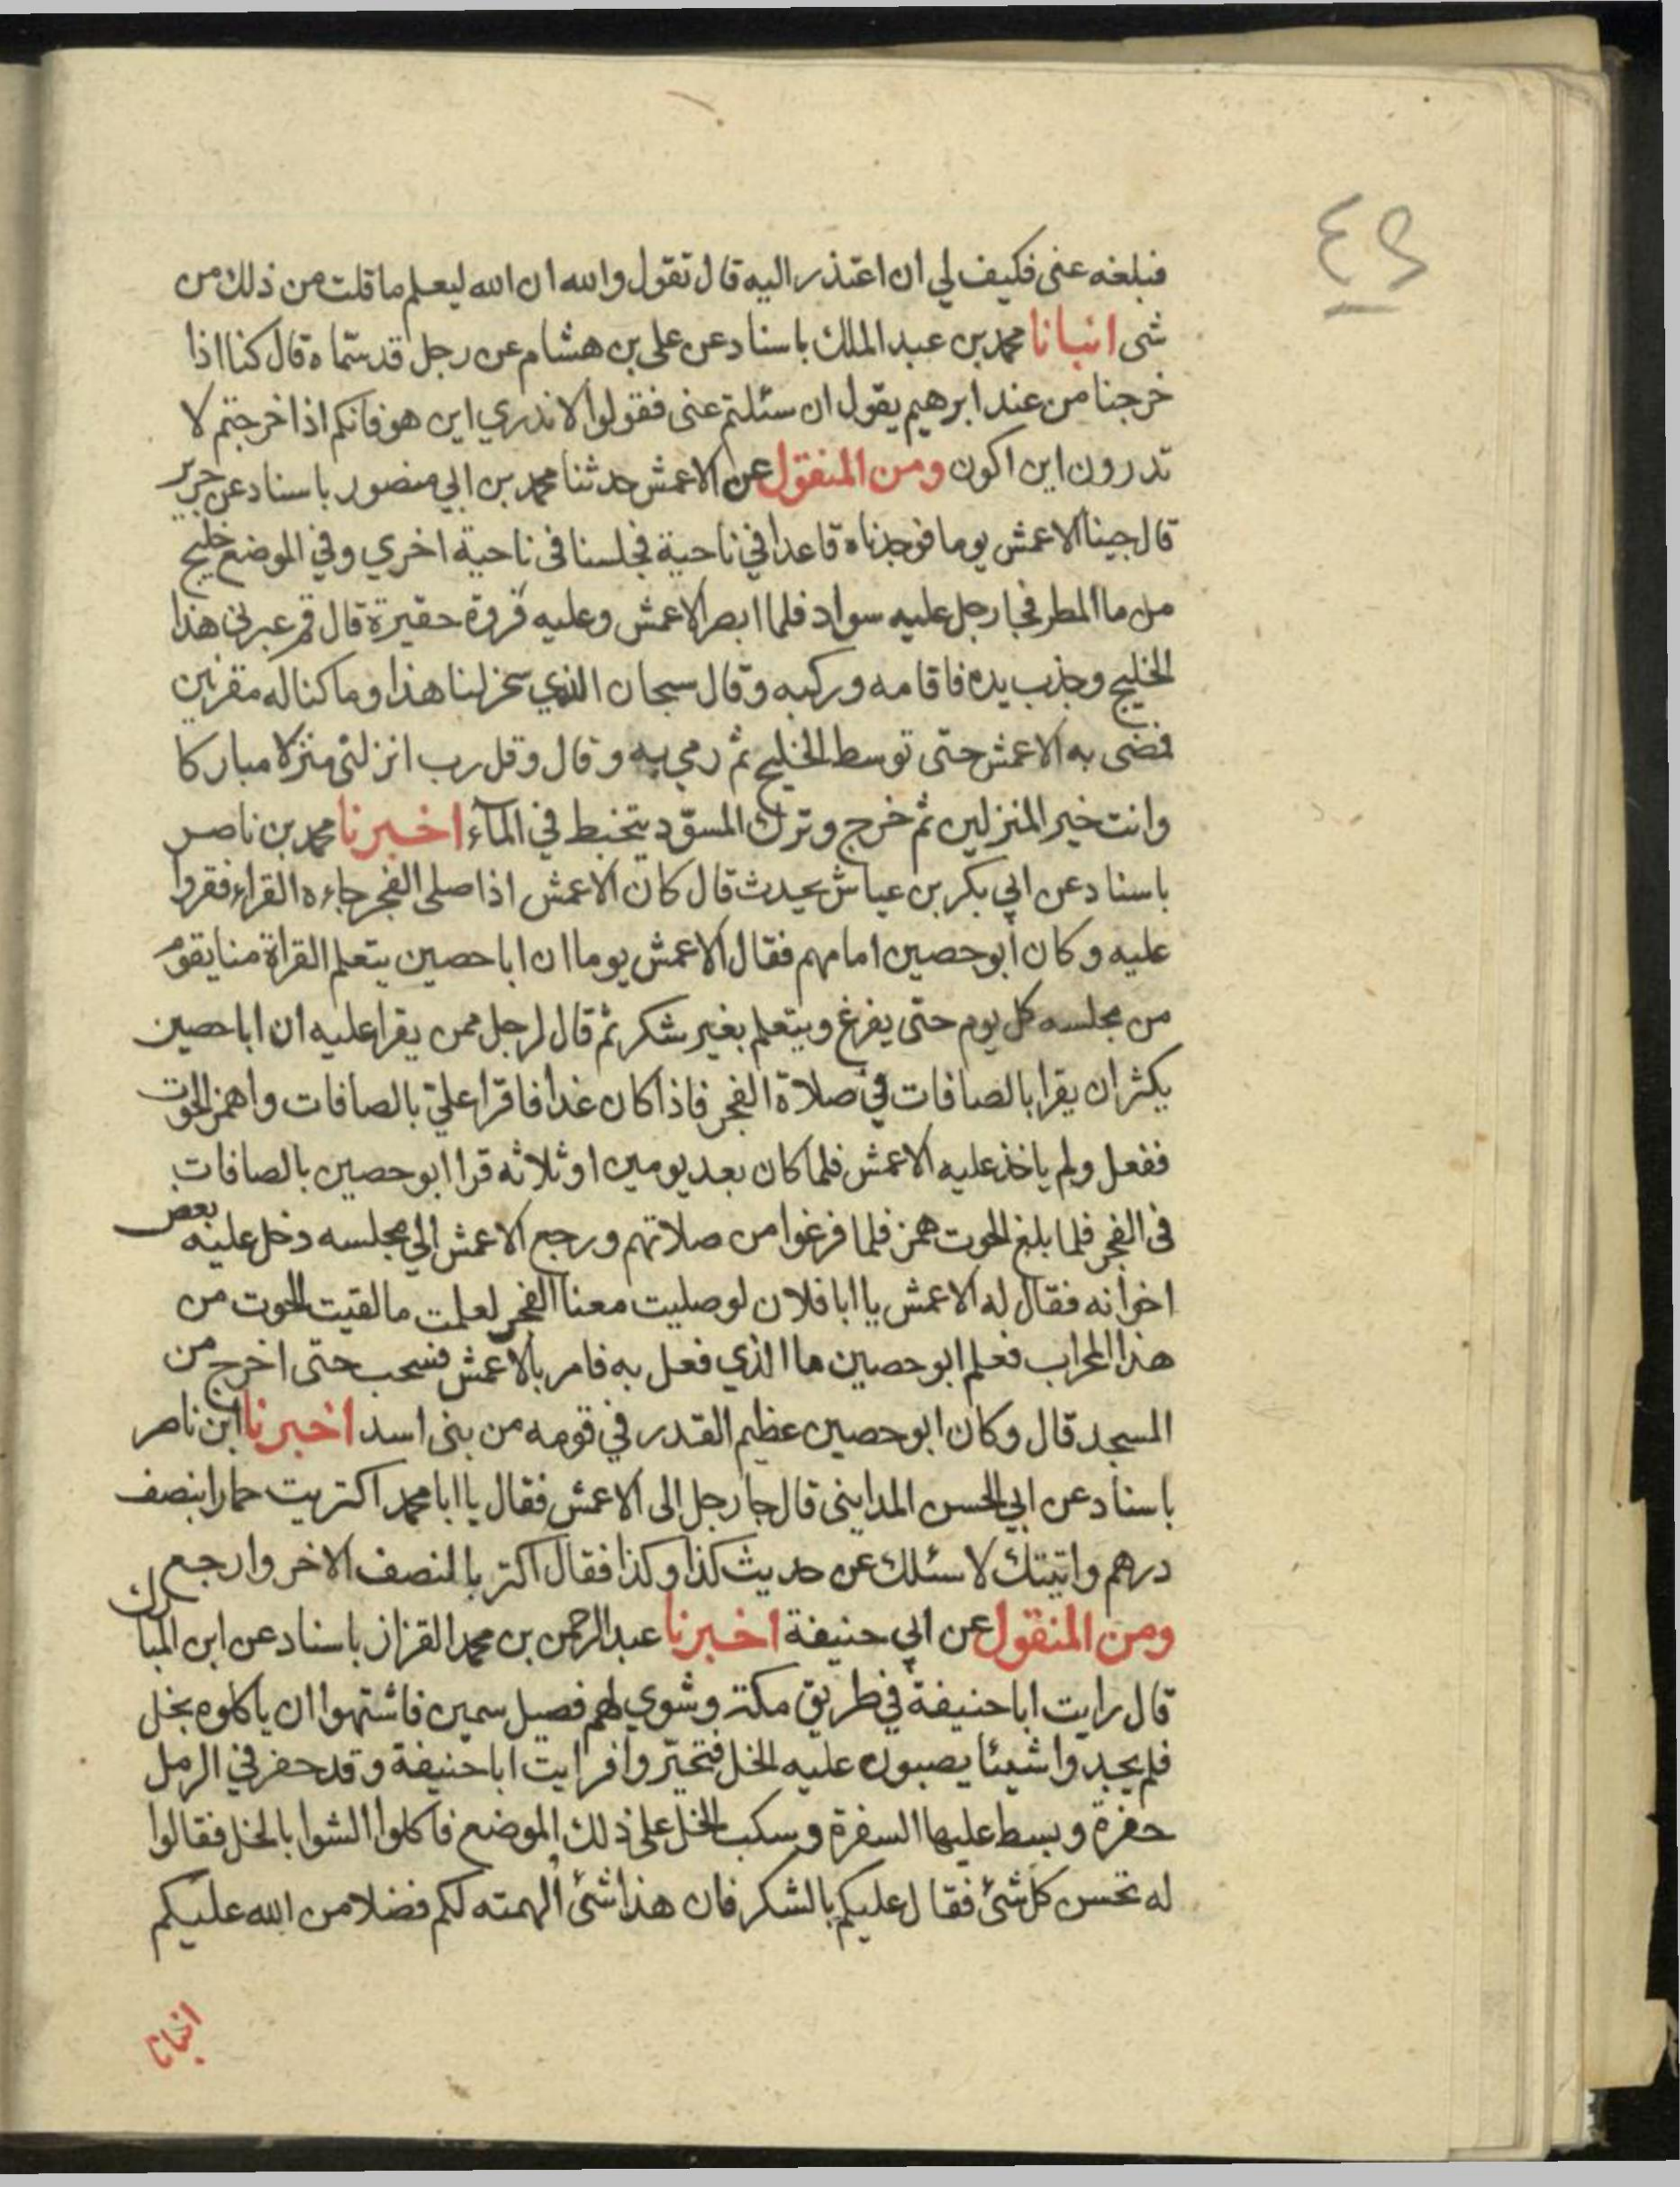 ٤٩
فبلغه عنى فكيف لي ان اعتذر اليه قال تقول والله ان الله ليعلم ما قلت من ذلك من
شى انبانا محمد بن عبد الملك باسناد عن على بن هشام عن رجل قد سماه قال كنا اذا
خرجنا من عند ابرهيم يقول ان سئلتم عنى فقولوا لا ندري اين هو فانكم اذا خرجتم لا
تدرون اين اكون ومن المنقول عن الاعمش حدثنا محمد بن ابي منصور باسناد عن جرير
قال جينا الاعمش يوما فوجدناه قاعدا في ناحية فجلسنا فى ناحية اخري وفي الموضع خليج
من ما المطر فجا رجل عليه سواد فلما ابصر الاعمش وعليه فروة حقيرة قال قم عبرنى هذا
الخليج وجذب يده فاقامه وركبه وقال سبحان الذي سخر لنا هذا وما كنا له مقرنين
فمضى به الاعمش حتى توسط الخليج ثم رمي به وقال وقل رب انزلنى منزلا مباركا
وانت خير المنزلين ثم خرج وترك المسود يتخبط في المآء اخبرنا محمد بن ناصر
باسناد عن ابي بكر بن عياش يحدث قال كان الاعمش اذا صلى الفجر جاءه القراء فقروا
عليه وكان أبو حصين امامهم فقال الاعمش يوما ان ابا حصين يتعلم القراة منا يقوم
من مجلسه كل يوم حتى يفرغ ويتعلم بغير شكر ثم قال لرجل ممن يقرا عليه ان ابا حصين
يكثر ان يقرا بالصافات في صلاة الفجر فاذا كان غدا فاقرا علي بالصافات واهمز الحوت
ففعل ولم ياخذ عليه الاعمش فلما كان بعد يومين او ثلاثه قرا ابو حصين بالصافات
فى الفجر فلما بلغ الحوت همز فلما فرغوا من صلاتهم ورجع الاعمش الي مجلسه دخل عليه بعض
اخوانه فقال له الاعمش يا ابا فلان لو صليت معنا الفجر لعلمت ما لقيت الحوت من
هذا المحراب فعلم ابو حصين ما الذي فعل به فامر بالاعمش فسحب حتى اخرج من
المسجد قال وكان ابو حصين عظيم القدر في قومه من بنى اسد اخبرنا ابن ناصر
باسناد عن ابي الحسن المداينى قال جا رجل الى الاعمش فقال يا ابا محمد اكتريت حمارا بنصف
درهم واتيتك لاسئلك عن حديث كذا وكذا فقال اكتر بالنصف الاخر وارجع
ومن المنقول عن ابي حنيفة اخبرنا عبد الرحمن بن محمد القزاز باسناد عن ابن المبارك
قال رايت ابا حنيفة في طريق مكة وشوي لهم فصيل سمين فاشتهوا ان ياكلوه بخل
فلم يجدوا شيئا يصبون عليه الخل فتحيروا فرايت ابا حنيفة وقد حفر في الرمل
حفرة وبسط عليها السفرة وسكب الخل على ذلك الموضع فاكلوا الشوا بالخل فقالوا
له تحسن كل شئ فقال عليكم بالشكر فان هذا شئ ألهمته لكم فضلا من الله عليكم
انبانا